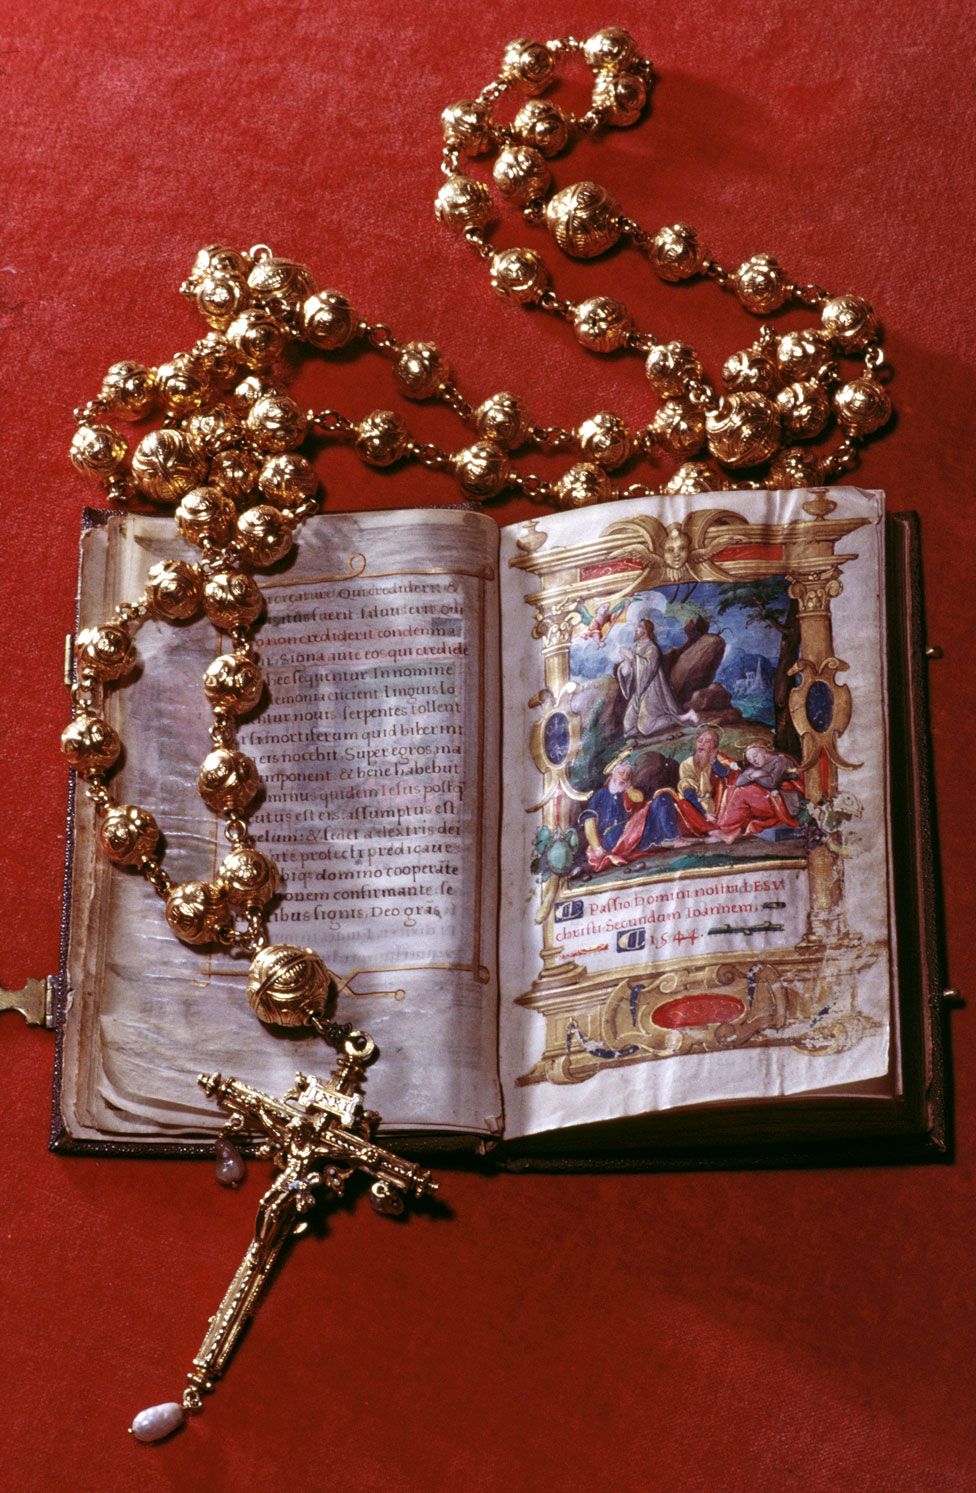 creature. Qui crediderit &
fuerit saluus erit. Qui
non crediderit condemna
Signa aute eos qui credide
hec sequentur. In nomine
emonia eiicient linguis lo
entur nouis serpentes tollent
si mortiferum quid biberint
eis nocebit. Super egros ma
imponent & bene habebut
ominus quidem Iesus postq
cutus est eis: assumptus est
celum: & sedet a dextris dei
protecti predicauer
biq; domino cooperate
onem confirmante. se
tibus signis. Deo gras
Passio Domini nostri IESV
christi Secundum Ioannem.
1544.